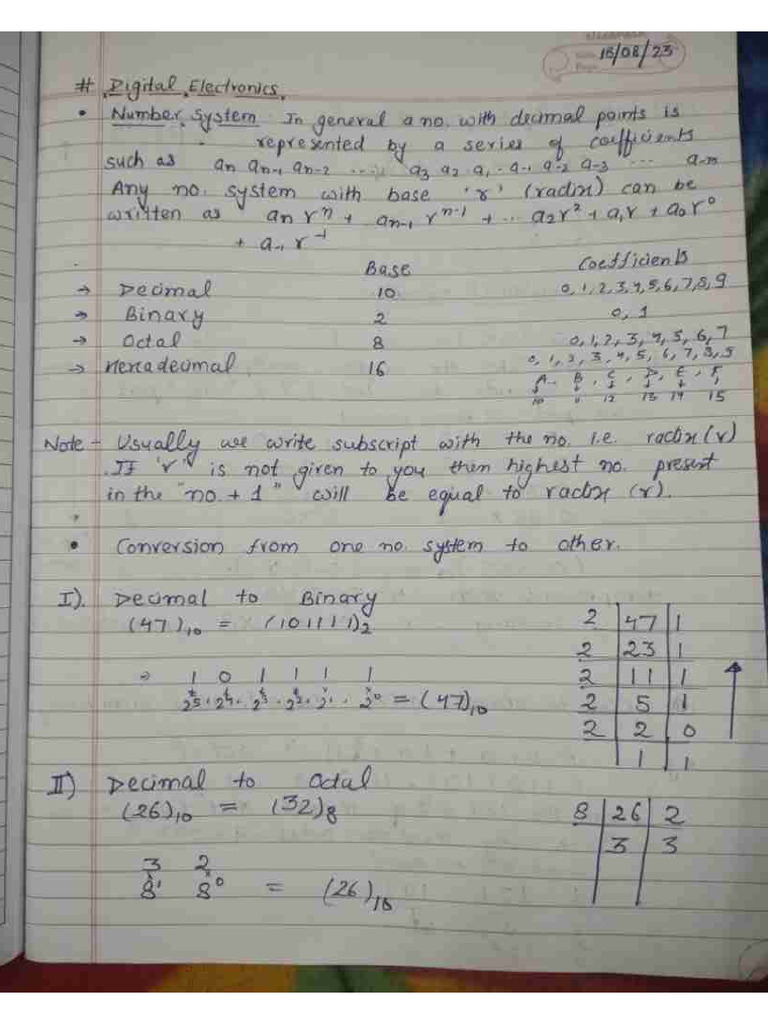 15/08/23
# Digital Electronics.
• Number System In general a no. with decimal points is
represented by a series of coefficients
such as an an-1 an-2 ... a3 a2 a1 a-1 a-2 a-3 ... a-n
Any no. system with base 'r' (radix) can be
written as an rⁿ + an-1 rⁿ⁻¹ + ... a2r² + a1r + a0r⁰
+ a-1 r⁻¹
Base Coefficients
→ Decimal 10 0,1,2,3,4,5,6,7,8,9
→ Binary 2 0,1
→ Octal 8 0,1,2,3,4,5,6,7
→ Hexadecimal 16 0,1,2,3,4,5,6,7,8,9
A, B, C, D, E, F,
↓ ↓ ↓ ↓ ↓
10 11 12 13 14 15
Note - Usually we write subscript with the no. i.e. radix (r)
If 'r' is not given to you then highest no. present
in the "no. + 1" will be equal to radix (r).
• Conversion from one no. system to other.
I). Decimal to Binary
(47)10 = (101111)2
2 | 47 | 1
2 | 23 | 1
2 | 11 | 1
2 | 5 | 1
2 | 2 | 0
1 | 1
→ 1 0 1 1 1 1
2⁵ . 2⁴ . 2³ . 2² . 2¹ . 2⁰ = (47)10
II) Decimal to Octal
(26)10 = (32)8
8 | 26 | 2
3 | 3
3 2
× ×
8¹ 8⁰ = (26)10